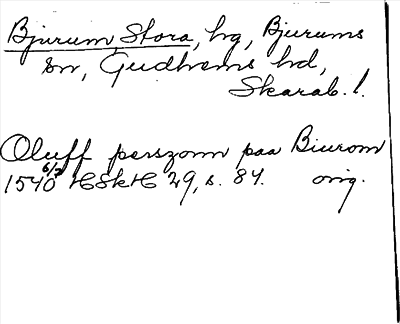 Bjurum, Stora, hg, Bjurums
sn, Gudhems hd,
Skarab. l.
Oluff perszonn paa Biurom
1540 6/2 HSkH 29, s. 84. orig.